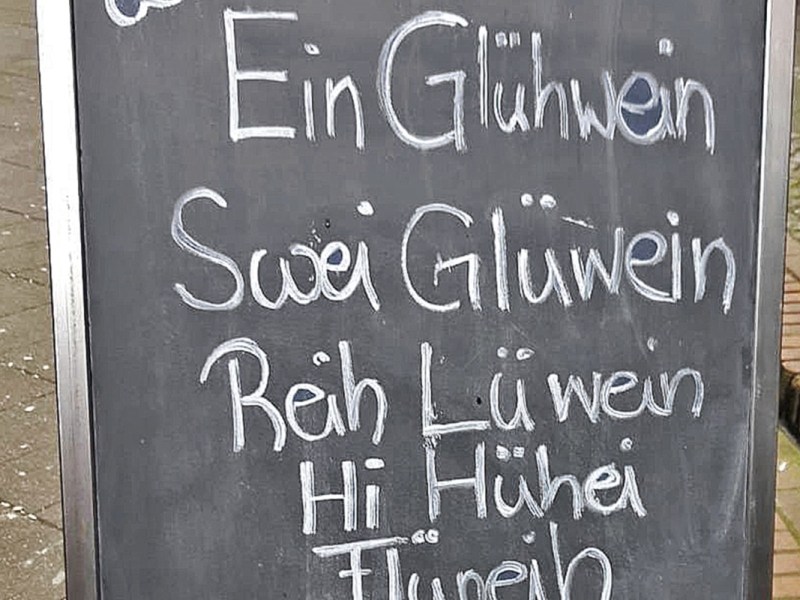 Ein Glühwein
Swei Glüwein
Reih Lüwein
Hi Hühei
Flüreih